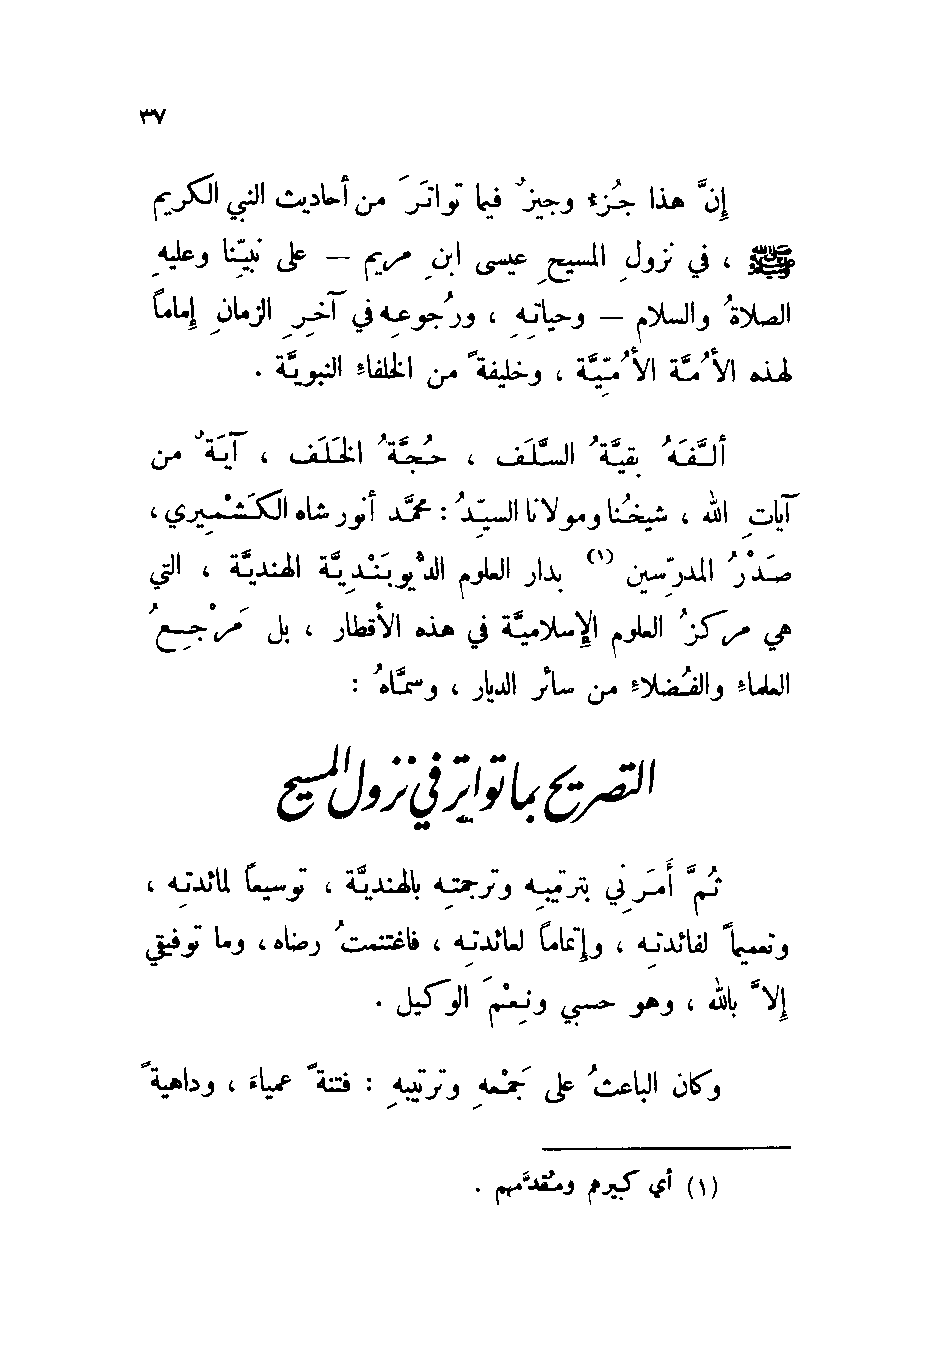 ٣٧
إنَّ هذا جُزء وجيزٌ فيما تواتَرَ من أحاديث النبي الكريم
ﷺ ، في نزولِ المسيحِ عيسى ابنِ مريم — على نبيِّنا وعليهِ
الصلاةُ والسلام — وحياتِهِ ، ورُجوعِه في آخِرِ الزمانِ إماماً
لهذه الأُمَّة الأُمِّيَّة ، وخليفةً من الخلفاءِ النبويَّة .
ألَّفَهُ بقيَّةُ السَّلَف ، حُجَّةُ الخَلَف ، آيَةٌ من
آياتِ الله ، شيخُنا ومولانا السيِّدُ : محمَّد أنور شاه الكَشْمِيري ،
صَدْرُ المدرِّسين (١) بدار العلوم الدِّيُوبَنْدِيَّة الهنديَّة ، التي
هي مركزُ العلوم الإسلاميَّة في هذه الأقطار ، بل مَرْجِعُ
العلماءِ والفُضلاءِ من سائر الديار ، وسمَّاهُ :
التصريح بما تواتر في نزول المسيح
ثُمَّ أَمَرَني بترتيبِه وترجمتِه بالهنديَّة ، توسيعاً لمائدتِه ،
وتعميماً لفائدتِه ، وإتماماً لعائدتِه ، فاغتنمتُ رضاه ، وما توفيقي
إلاَّ بالله ، وهو حسبي ونِعْمَ الوكيل .
وكان الباعثُ على جَمْعِه وترتيبِه : فتنةً عمياءَ ، وداهيةً
(١) أي كبيرهم ومُقدَّمهم .